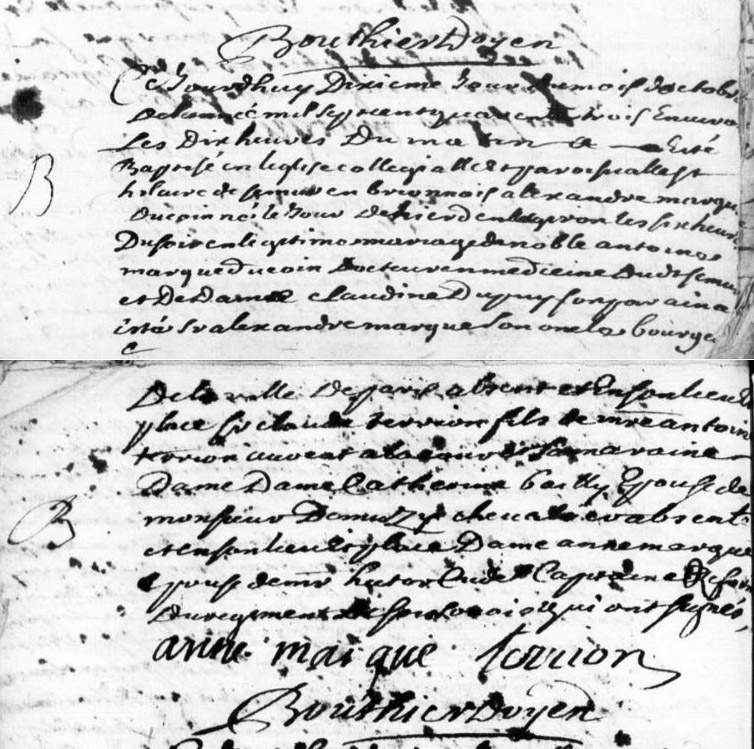 Bouthier Doyen
Ce Jourdhuy Dixieme Jour du mois doctobr
De lanneé mil sept cent quarente trois Environ
Les Dix heures Du matin a Esté
Baptisé en leglise collegialle et paroissialle st
hilaire de semur en brionnois alexandre marque
Ducoin né le Jour dehier denleguron les six heure
Du soir en legitime mariage de noble antoine
marque ducoin Docteur en medicine Dudt semur
et De Dame claudine Dupuy son parain a
esté sr alexandre marque son oncle bourge
B
De la ville De paris absent et En son lieu et
place sr claude terrion fils de mre antoine
terrion avocat a la cour et sa maraine
Dame Dame Catherine bailly Epouse de
monsieur Demuzzy chevalier absente
et en son lieu et place Dame anne marque
epouse de mr hector Capitaine
Du regiment de qui ont signés,
B
anne marque terrion
Bouthier Doyen